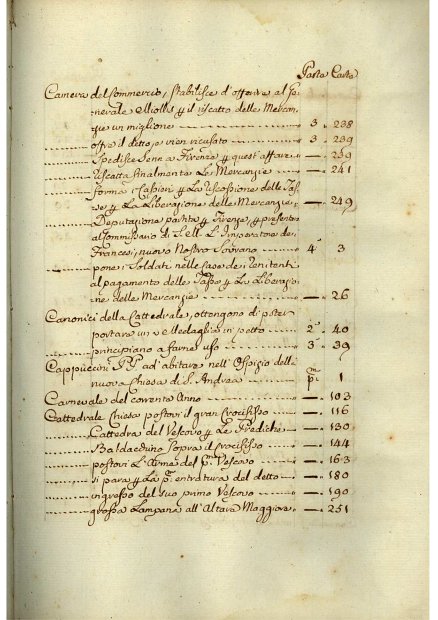 Parta Carta
Camera del Commercio, stabilisce d'offerire al Ge-
nerale Miollis p il riscatto delle Mercan,
zie un miglione 3. 238
offre il detto, e vien ricusato 3. 239
Spedisce Senn a Firenze p quest'affare 239
Riscatta finalmente Le Mercanzie 241
forma i Cassieri p La Riscossione delle Tas-
se p La Liberazione delle Mercanzie 249
Deputazione partita p Firenze, p presentarsi
al Commissario di S. M. L'Imperatore de
Francesi, nuovo Nostro Sovrano 4 3
pone i Soldati nelle Case de Renitenti
al pagamento delle Tasse p La Liberazio
ne delle Mercanzie 26
Canonici della Cattedrale, ottengono di poter
portare un Medaglia in petto 2. 40
principiano a farne uso 3. 39
Cappuccini PP ad'abitare nell'Ospizio della
nuova Chiesa di S. Andrea p. 1
Carnevale del corrente Anno 103
Cattedrale Chiesa postovi il gran Crocifisso 116
Cattedra del Vescovo p Le Prediche 130
Baldacchino sopra il Crocifisso 144
postovi L'Arme del p. Vescovo 163
si para p La p. entratura del detto 180
ingresso del suo primo Vescovo 190
grossa Lampana all'Altare Maggiore 251